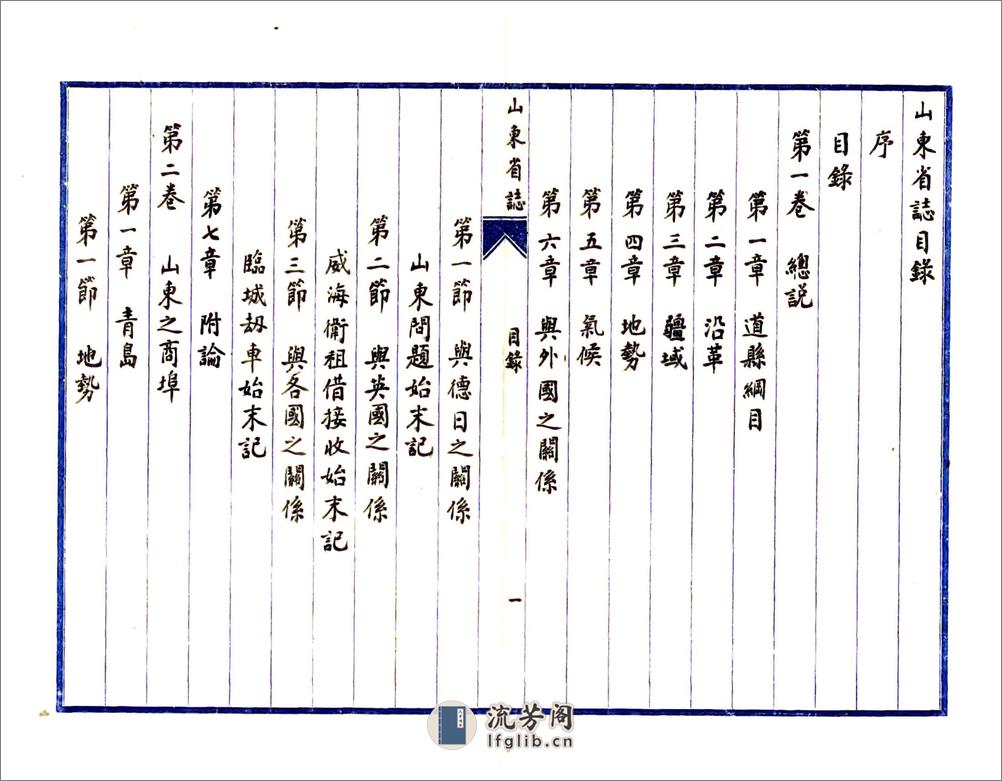 山東省誌目錄
序
目錄
第一卷 總説
第一章 道縣綱目
第二章 沿革
第三章 疆域
第四章 地勢
第五章 氣候
第六章 與外國之關係
山東省誌 目錄 一
第一節 與德日之關係
山東問題始末記
第二節 與英國之關係
威海衛租借接收始末記
第三節 與各國之關係
臨城刼車始末記
第七章 附論
第二卷 山東之商埠
第一章 青島
第一節 地勢
流芳阁
lfglib.cn